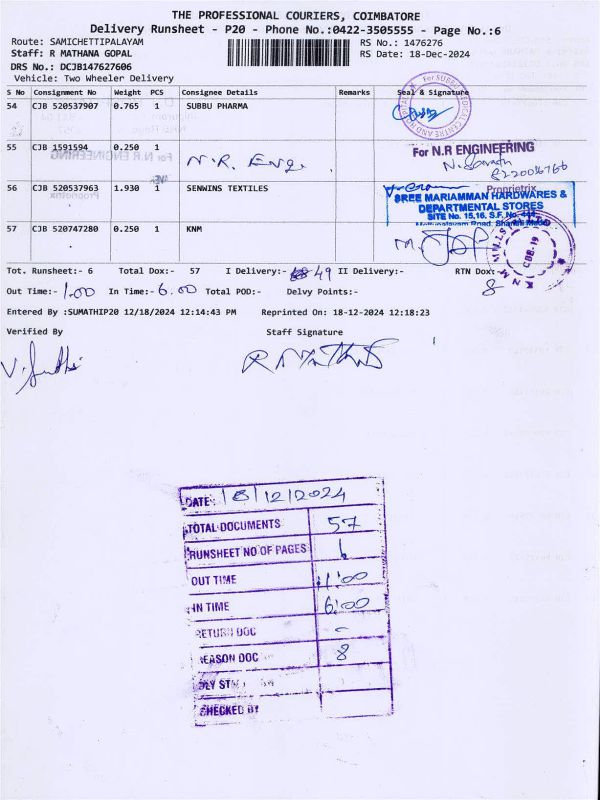 THE PROFESSIONAL COURIERS, COIMBATORE
Delivery Runsheet - P20 - Phone No.:0422-3505555 - Page No.:6
Route: SAMICHETTIPALAYAM
RS No.: 1476276
Staff: R MATHANA GOPAL
RS Date: 18-Dec-2024
DRS No.: DCJB147627606
Vehicle: Two Wheeler Delivery
S No Consignment No Weight PCS Consignee Details Remarks Seal & Signature
54 CJB 520537907 0.765 1 SUBBU PHARMA
55 CJB 1591594 0.250 1 N.R. Eng.
For N.R ENGINEERING
8220036766
Proprietrix
56 CJB 520537963 1.930 1 SENWINS TEXTILES
SREE MARIAMMAN HARDWARES &
DEPARTMENTAL STORES
SITE No. 15,16, S.F. No. 444,
57 CJB 520747280 0.250 1 KNM
Tot. Runsheet:- 6 Total Dox:- 57 I Delivery:- 49 II Delivery:- RTN Dox:- 8
Out Time:- 1.00 In Time:- 6.00 Total POD:- Delvy Points:-
Entered By :SUMATHIP20 12/18/2024 12:14:43 PM Reprinted On: 18-12-2024 12:18:23
Verified By Staff Signature
DATE: 18/12/2024
TOTAL DOCUMENTS 57
RUNSHEET NO OF PAGES 6
OUT TIME 1:00
IN TIME 6:00
RETURN DOC -
REASON DOC 8
CHECKED BY